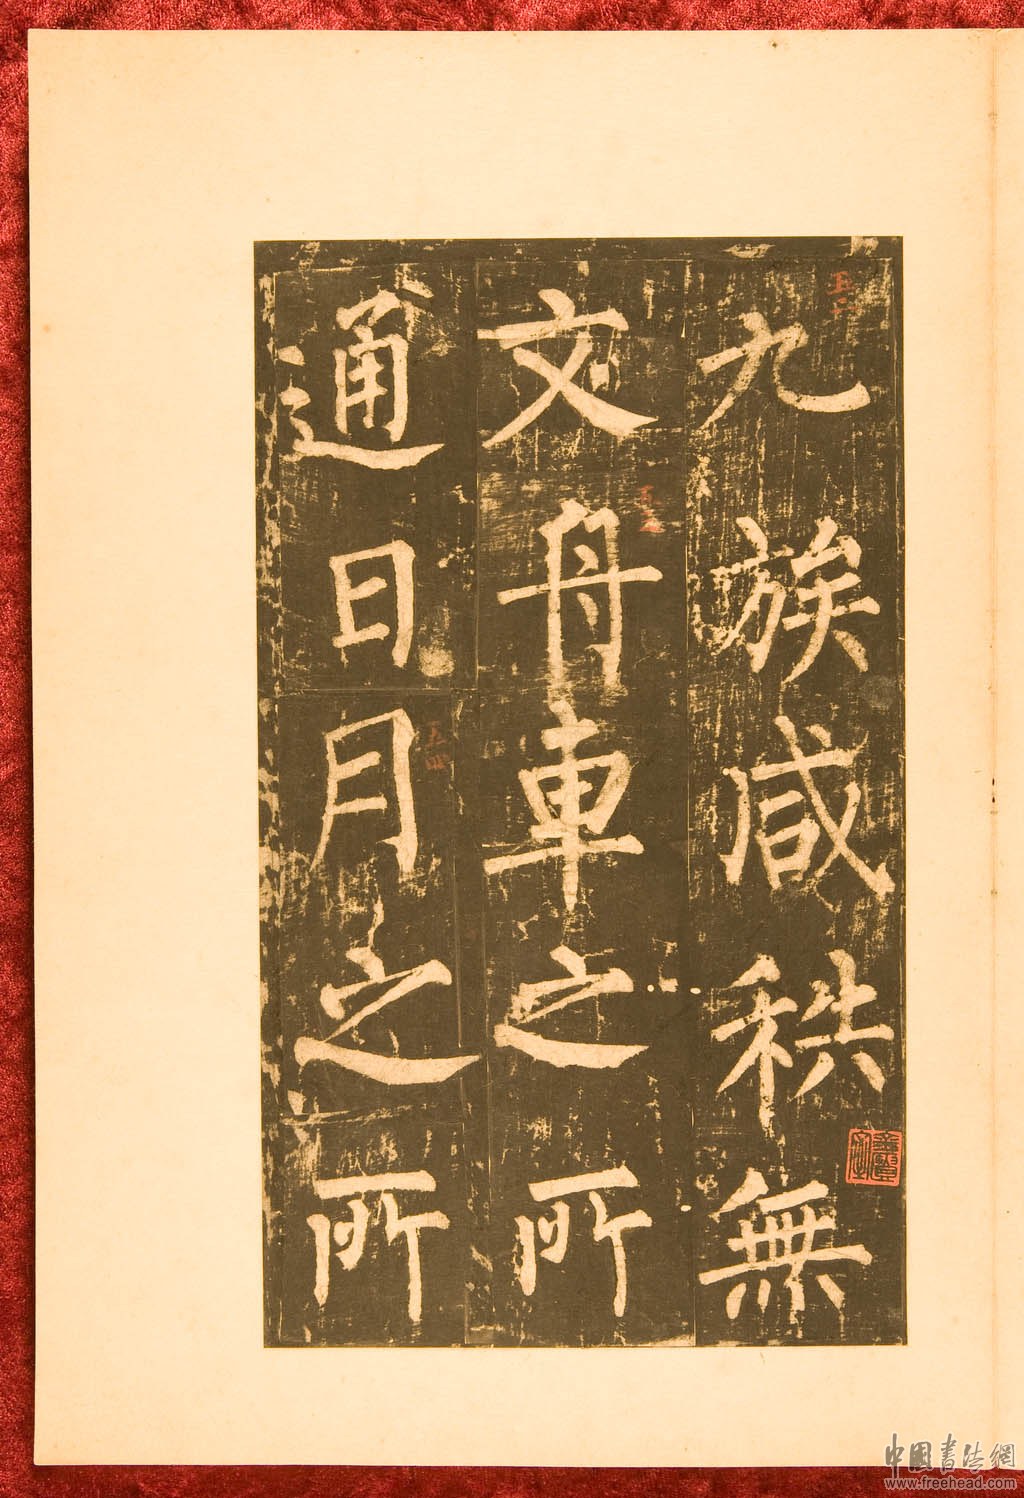 九族咸秩無
文舟車之所
通日月之所
五二
五三
五四
中國書法網
www.freehead.com